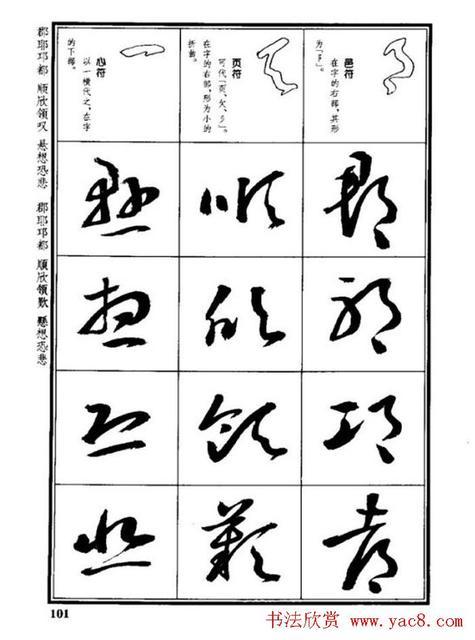 邑符
在字的右部，其形
为「阝」。
页符
可代「页、欠、彡」。
在字的右部，形为小的
折曲。
心符
以一横代之，在字
的下部。
郡
耶
邛
都
顺
欣
领
叹
悬
想
恐
悲
郡耶邛都 顺欣领叹 悬想恐悲 郡耶邛都 順欣領歎 懸想恐悲
101
书法欣赏 www.yac8.com